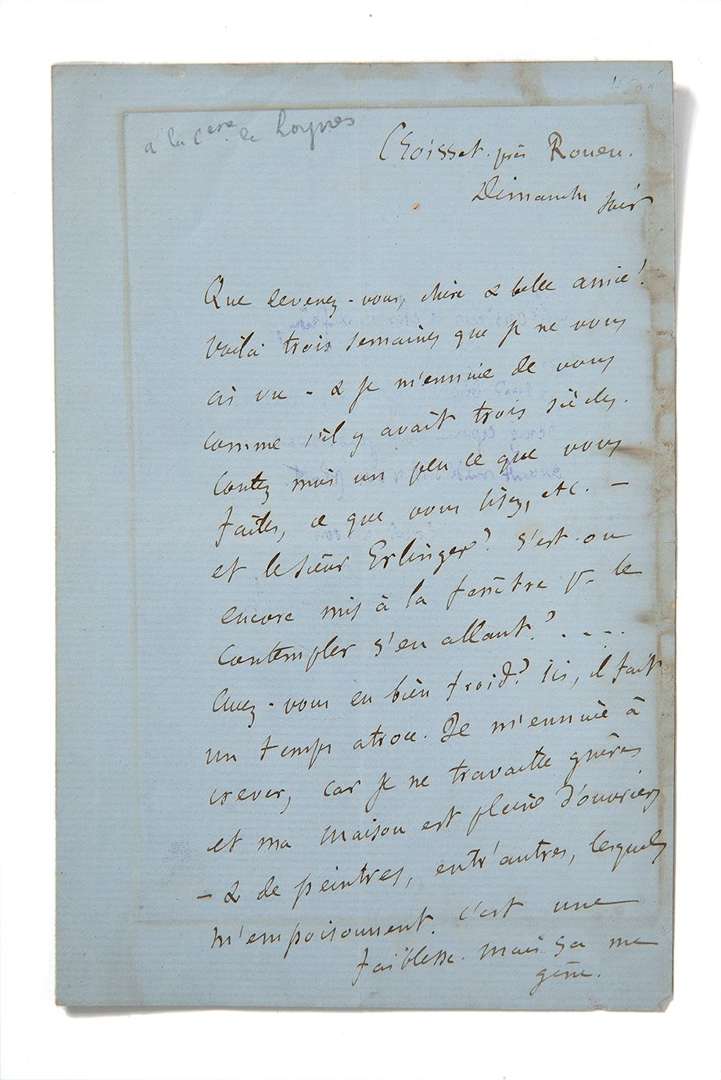 à la Ctesse de Loynes
Croisset. près Rouen.
Dimanche soir
Que devenez-vous, chère & belle amie!
Voilà trois semaines que je ne vous
ai vu - & je m'ennuie de vous
comme s'il y avait trois siècles.
Contez moi un peu ce que vous
faites, ce que vous lisez, etc. -
et le sieur Erlinger? S'est-on
encore mis à la fenêtre pr le
contempler s'en allant? . . . .
Avez-vous eu bien froid? Ici, il fait
un temps atroce. Je m'ennuie à
crever, car je ne travaille guères
et ma maison est pleine d'ouvriers
- & de peintres, entr'autres, lesquels
m'empoisonnent. C'est une
faiblesse. mais ça me
gêne.